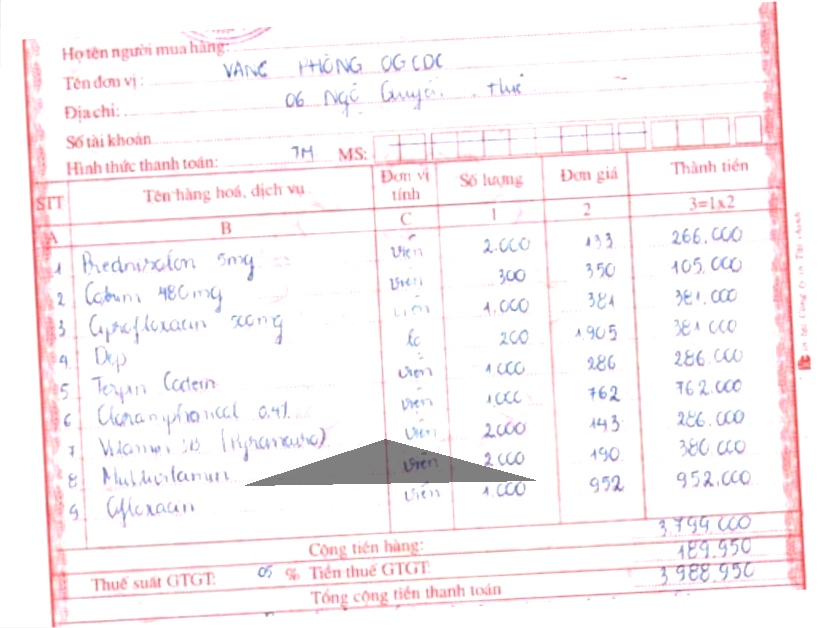 Họ tên người mua hàng:
Tên đơn vị: VANG PHÒNG OGCDC
Địa chỉ: 06 Ngô Quyền. Huế
Số tài khoản
Hình thức thanh toán: TM MS:
STT Tên hàng hoá, dịch vụ Đơn vị tính Số lượng Đơn giá Thành tiền
A B C 1 2 3=1x2
1 Prednisolon 5mg Viên 2.000 133 266.000
2 480mg Viên 300 350 105.000
3 Ciprofloxacin 500mg Viên 1.000 381 381.000
4 Dep lc 200 1.905 381.000
5 Terpin Codein Viên 1000 286 286.000
6 Cloramphenicol 0.4% Viên 1,000 762 762.000
7 Vitamin 3B Viên 2000 143 286.000
8 Multivitamin Viên 2.000 190 380.000
9 Ofloxacin Viên 1.000 952 952.000
Cộng tiền hàng: 3.799.000
Thuế suất GTGT: 05 % Tiền thuế GTGT: 189.950
Tổng cộng tiền thanh toán 3.988.950